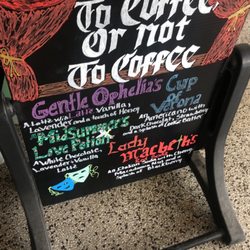 To Coffee,
Or not
To Coffee
Gentle Ophelia's
A Latte with Vanilla,
Lavender and a touch of Honey
Cup of
Verona
An Americano with
Dark Chocolate, Strawberry
"Midsummer's"
Love Potion
A White Chocolate,
Lavender, Vanilla
Latte
Lady
Macbeth's